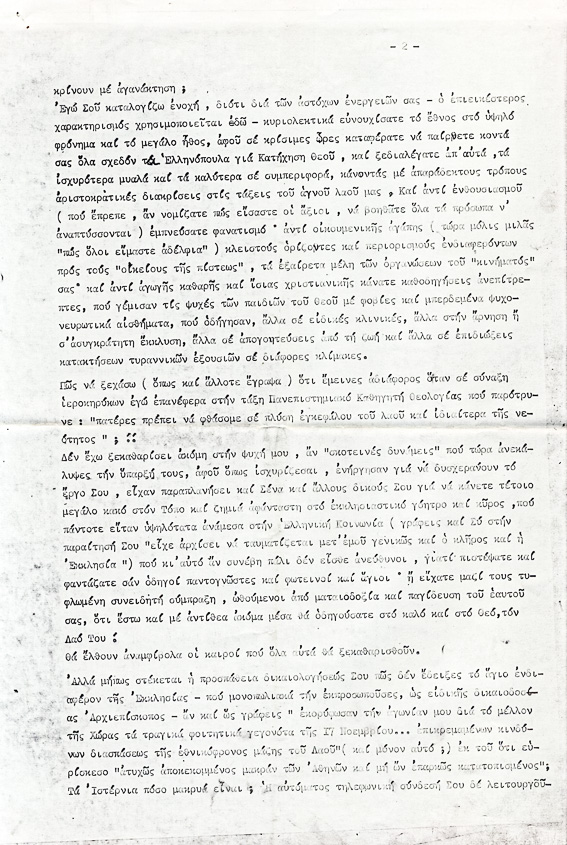 - 2 -
κρίνουν μέ ἀγανάκτηση ;
Ἐγώ Σοῦ καταλογίζω ἐνοχή , διότι διά τῶν ἀστόχων ἐνεργειῶν σας - ὁ ἐπιεικέστερος
χαρακτηρισμός χρησιμοποιεῖται ἐδῶ - κυριολεκτικά εὐνουχίσατε τό ἔθνος στό ὑψηλό
φρόνημα καί τό μεγάλο ἦθος, ἀφοῦ σέ κρίσιμες ὧρες καταφέρατε νά παίρνετε κοντά
σας ὅλα σχεδόν τά Ἑλληνόπουλα γιά Κατήχηση Θεοῦ , καί ξεδιαλέγατε ἀπ'αὐτά ,τά
ἰσχυρότερα μυαλά καί τά καλύτερα σέ συμπεριφορά, κάνοντάς μέ ἀπαράδεκτους τρόπους
ἀριστοκρατικές διακρίσεις στίς τάξεις τοῦ ἁγνοῦ λαοῦ μας . Καί ἀντί ἐνθουσιασμοῦ
( πού ἔπρεπε , ἄν νομίζατε πώς εἴσαστε οἱ ἄξιοι , νά βοηθᾶτε ὅλα τά πρόσωπα ν'
ἀναπτύσσονται ) ἐμπνεύσατε φανατισμό · ἀντί οἰκουμενικῆς ἀγάπης ( τώρα μόλις μιλᾶς
"πώς ὅλοι εἴμαστε ἀδέλφια" ) κλειστούς ὁρίζοντες καί περιορισμούς ἐνδιαφερόντων
πρός τούς "οἰκείους τῆς πίστεως" , τά ἐξαίρετα μέλη τῶν ὀργανώσεων τοῦ "κινήματός"
σας· καί ἀντί ἀγωγῆς καθαρῆς καί ἴσιας χριστιανικῆς κάνατε καθοδηγήσεις ἀνεπίτρε-
πτες, πού γέμισαν τίς ψυχές τῶν παιδιῶν τοῦ Θεοῦ μέ φοβίες καί μπερδεμένα ψυχο-
νευρωτικά αἰσθήματα, πού ὁδήγησαν, ἄλλα σέ εἰδικές κλινικές, ἄλλα στήν ἄρνηση ἤ
σ'ἀσυγκράτητη ἔκκλυση, ἄλλα σέ ἀπογοητεύσεις ἀπό τή ζωή καί ἄλλα σέ ἐπιδιώξεις
κατακτήσεων τυραννικῶν ἐξουσιῶν σέ διάφορες κλίμακες.
Πῶς νά ξεχάσω ( ὅπως καί ἄλλοτε ἔγραψα ) ὅτι ἔμεινες ἀδιάφορος ὅταν σέ σύναξη
ἱεροκηρύκων ἐγώ ἐπανέφερα στήν τάξη Πανεπιστημιακό Καθηγητή Θεολογίας πού παρότρυ-
νε : "πατέρες πρέπει νά φθάσομε σέ πλύση ἐγκεφάλου τοῦ λαοῦ καί ἰδιαίτερα τῆς νε-
ότητος " ; !!
Δέν ἔχω ξεκαθαρίσει ἀκόμη στήν ψυχή μου , ἄν "σκοτεινές δυνάμεις" πού τώρα ἀνεκά-
λυψες τήν ὕπαρξή τους, ἀφοῦ ὅπως ἰσχυρίζεσαι , ἐνήργησαν γιά νά δυσχεράνουν τό
ἔργο Σου , εἶχαν παραπλανήσει καί Σένα καί ἄλλους δικούς Σου γιά νά κάνετε τέτοιο
μεγάλο κακό στόν Τόπο καί ζημιά ἀφάνταστη στό ἐκκλησιαστικό γόητρο καί κῦρος ,πού
πάντοτε εἶταν ὑψηλότατα ἀνάμεσα στήν Ἑλληνική Κοινωνία ( γράφεις καί Σύ στήν
παραίτησή Σου "εἶχε ἀρχίσει νά ταυματίζεται μετ'ἐμοῦ γενικῶς καί ὁ κλῆρος καί ἡ
Ἐκκλησία ") πού κι'αὐτό ἄν συνέβη πάλι δέν εἶσθε ἀνεύθυνοι , γιατί πιστέψατε καί
φαντάζατε σάν ὁδηγοί παντογνῶστες καί φωτεινοί καί ἅγιοι · ἤ εἴχατε μαζί τους τυ-
φλωμένη συνειδητή σύμπραξη , ὠθούμενοι ἀπό ματαιοδοξία καί παγίδευση τοῦ ἑαυτοῦ
σας, ὅτι ἔστω καί μέ ἀντίθεα ἀκόμα μέσα θά ὁδηγούσατε στό καλό καί στό Θεό,τόν
Λαό Του !
Θά ἔλθουν ἀναμφίβολα οἱ καιροί πού ὅλα αὐτά θά ξεκαθαρισθοῦν.
Ἀλλά μήπως στέκεται ἡ προσπάθεια δικαιολογήσεώς Σου πώς δέν ἔδειξες τό ἅγιο ἐνδι-
αφέρον τῆς Ἐκκλησίας - πού μονοπωλιακά τήν ἐκπροσωποῦσες, ὡς εἰδικῆς δικαιοδοσί-
ας Ἀρχιεπίσκοπος - ἄν καί ὡς γράφεις " ἐκορύφωσαν τήν ἀγωνίαν μου διά τό μέλλον
τῆς Χώρας τά τραγικά φοιτητικά γεγονότα τῆς 17 Νοεμβρίου... ἐπικρεμαμένων κινδύ-
νων διασπάσεως τῆς ἐθνικόφρονος μάζης τοῦ Λαοῦ"( καί μόνον αὐτό ;) ἐκ τοῦ ὅτι εὑ-
ρίσκεσο "ἀτυχῶς ἀποκεκομμένος μακράν τῶν Ἀθηνῶν καί μή ὤν ἐπαρκῶς κατατοπισμένος";
Τά Ἰστέρνια πόσο μακρυά εἶναι ; Ἡ αὐτόματος τηλεφωνική σύνδεσή Σου δέ λειτουργοῦ-